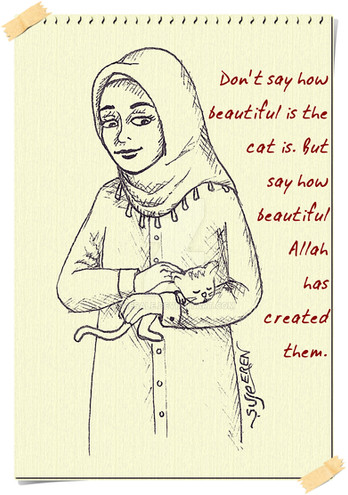 Don't say how
beautiful is the
cat is. But
say how
beautiful
Allah
has
created
them.